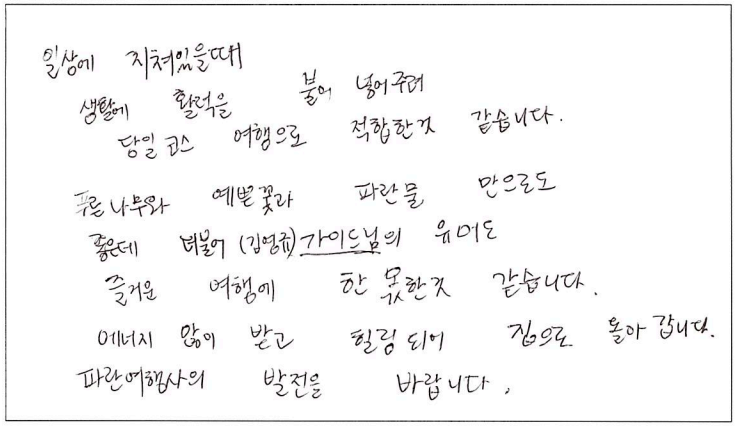 일상에 지쳐있을때
생활에 활력을 불어 넣어주려
당일 코스 여행으로 적합한것 같습니다.
푸른 나무와 예쁜 꽃과 파란 물 만으로도
좋은데 더불어 (김영규) 가이드님의 유머도
즐거운 여행에 한 몫한것 같습니다.
에너지 많이 받고 힐링 되어 집으로 돌아 갑니다.
파란여행사의 발전을 바랍니다.